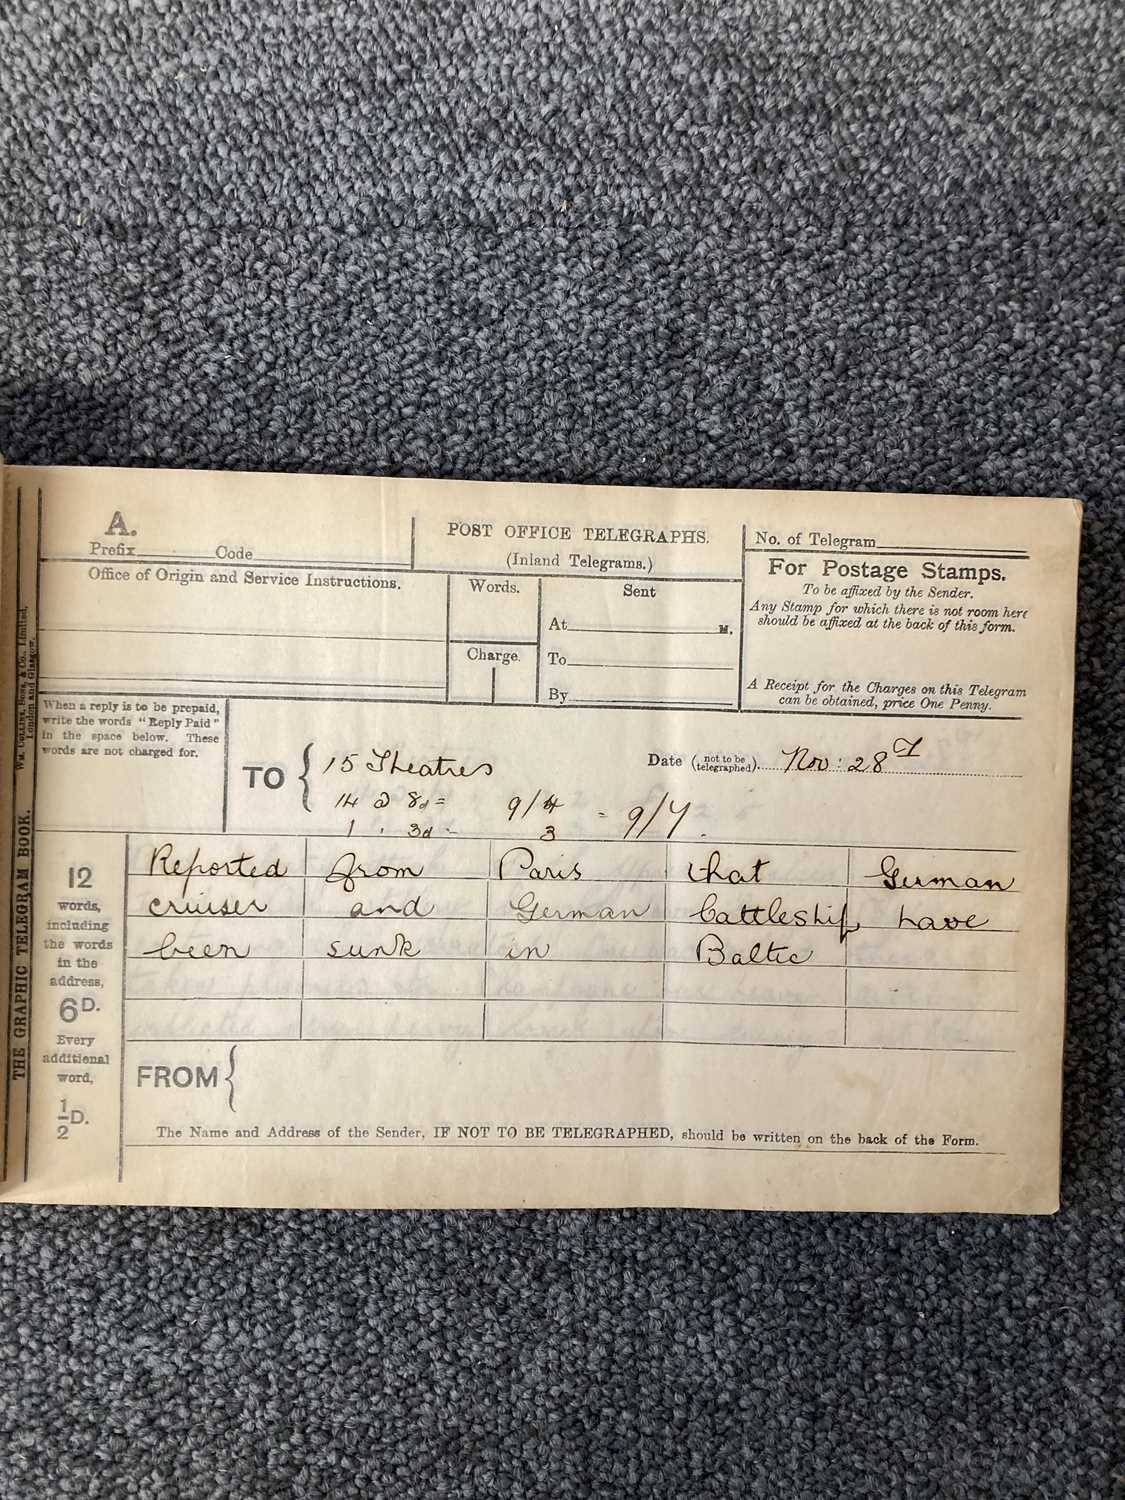 A.
Prefix Code
POST OFFICE TELEGRAPHS.
(Inland Telegrams.)
No. of Telegram
Office of Origin and Service Instructions.
Words.
Charge.
Sent
At M.
To
By
For Postage Stamps.
To be affixed by the Sender.
Any Stamp for which there is not room here
should be affixed at the back of this form.
A Receipt for the Charges on this Telegram
can be obtained, price One Penny.
THE GRAPHIC TELEGRAM BOOK.
Wm. Collins, Sons, & Co., Limited,
London and Glasgow.
When a reply is to be prepaid,
write the words "Reply Paid"
in the space below. These
words are not charged for.
TO
15 Theatres
14 @ 8d = 9/4 = 9/7.
1 " 3d - 3
Date (not to be telegraphed) Nov: 28
12
words,
including
the words
in the
address,
6D.
Every
additional
word,
1/2D.
Reported from Paris that German
cruiser and German battleship have
been sunk in Baltic
FROM
The Name and Address of the Sender, IF NOT TO BE TELEGRAPHED, should be written on the back of the Form.